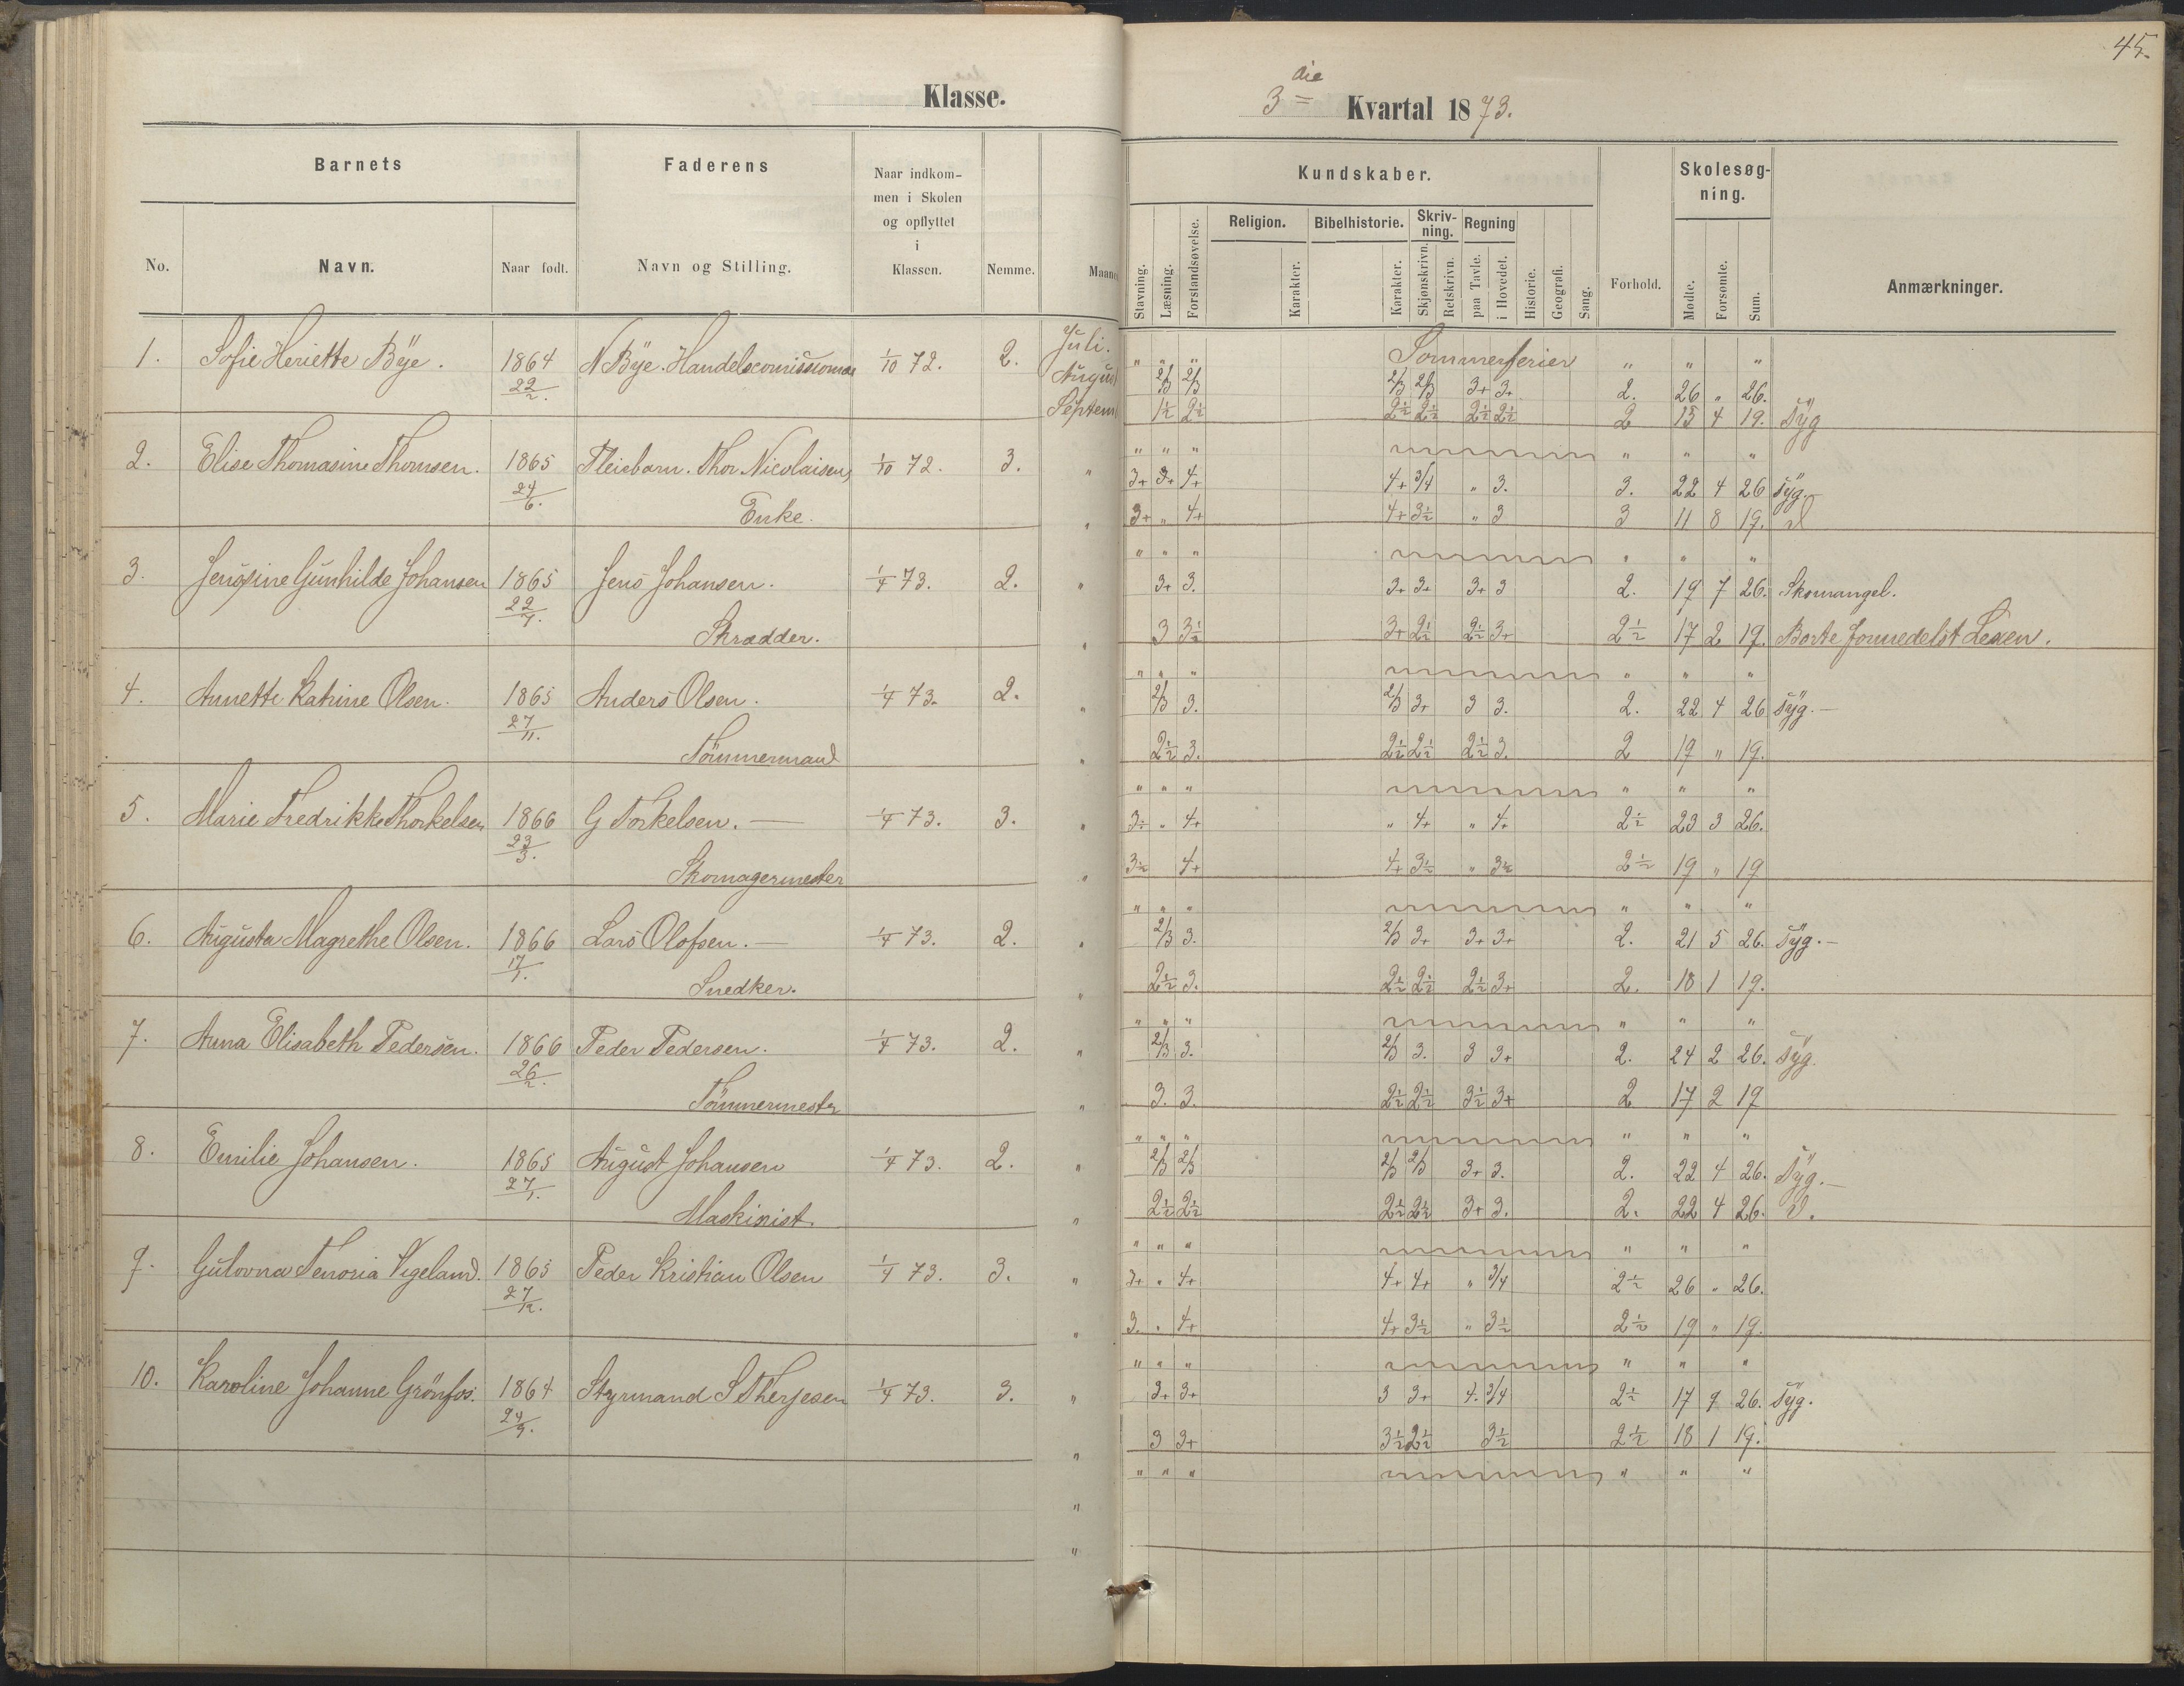 45.
Klasse.
3die Kvartal 1873.
Barnets
Faderens
Naar indkom-
men i Skolen
og opflyttet
i
Klassen.
No.
Navn.
Naar født.
Navn og Stilling.
Nemme.
Kundskaber.
Skolesøg-
ning.
Religion.
Bibelhistorie.
Skriv-
ning.
Regning
Stavning.
Læsning.
Forstandsøvelse.
Karakter.
Karakter.
Skjønskrivn.
Retskrivn.
paa Tavle.
i Hovedet.
Historie.
Geografi.
Sang.
Forhold.
Mødte.
Forsømte.
Sum.
Anmærkninger.
1. Sofie Heriette Bÿe. 1864 N Bÿe. 1/10 72. 2. Juli. " " " Sommerferier " " "
22/2. 2/3 2/3 2/3 2/3 3+ 3+ 2. 26 " 26.
1½ 2½ 2½ 2½ 2½ 2½ 2 15 4 19. Syg
2. Elise Thomasine Thomsen. 1865 Pleiebarn. Thor Nicolaisens 1/10 72. 3. " " " " " " "
24/6. 3+ 3+ 4+ 4+ 3/4 " 3. 3. 22 4 26 Syg.
Enke. 3+ " 4+ 4+ 3½ " 3 3 11 8 19.
3. Jensine Gunhilde Johansen 1865 Jens Johansen. 1/4 73. 2. " " " " " " "
3+ 3. 3+ 3+ 3+ 3 2. 19 7 26. Skomangel.
Skrædder. 3 3½ 3+ 2½ 2½ 3+ 2½ 17 2 19. Borte
4. Annette Katrine Olsen. 1865 Anders Olsen. 1/4 73. 2. " " " " " " "
27/11. 2/3 3. 2/3 3+ 3 3. 2. 22 4 26 Syg.—
Tömmermand 2½ 3. 2½ 2½ 2½ 3. 2 19 " 19.
5. Marie Fredrikke Thorkelsen 1866 G Torkelsen.— 1/4 73. 3. " " " " " " "
23/3. 3½ " 4+ " 4+ " 4+ 2½ 23 3 26.
Skomagermester 3½ 4+ 4+ 3½ " 3½ 2½ 19 " 19
6. Augusta Magrethe Olsen. 1866 Lars Olofsen.— 1/4 73. 2. " " " " " " "
17/1. 2/3 3. 2/3 3+ 3+ 3+ 2. 21 5 26. Syg.—
Snedker. 2½ 3. 2½ 2½ 2½ 3+ 2. 18 1 19.
7. Anna Elisabeth Pedersen. 1866 Peder Pedersen. 1/4 73. 2. " " " " " " "
26/2. 2/3 3. 2/3 3. 3 3+ 2. 24 2 26. Syg.
Tömmermester 3. 3. 2½ 2½ 3½ 3+ 2 17 2 19
8. Emilie Johansen. 1865 August Johansen 1/4 73. 2. " " " " " " "
27/1. 2/3 2/3 2/3 2/3 3+ 3. 2. 22 4 26. Syg.—
Maskinist. 2½ 2½ 2½ 2½ 3+ 3. 2. 22 4 26.
9. Gulovna Tenoria Vigeland. 1865 Peder Kristian Olsen 1/4 73. 3. " " " " " " "
27/12. 3+ " 4+ 4+ 4+ " 3/4 2½ 26 " 26.
3. " 4+ 4+ 3½ " 3½ 2½ 19 " 19.
10. Karoline Johanne Grönfos. 1864 Styrmand S Therjesen 1/4 73. 3. " " " " " " "
24/9. 3+ 3+ 3 3+ 4. 3/4 2½ 17 9 26. Syg.
3 3+ 3½ 2½ 3½ 2½ 18 1 19.
" " " " " "
"
"